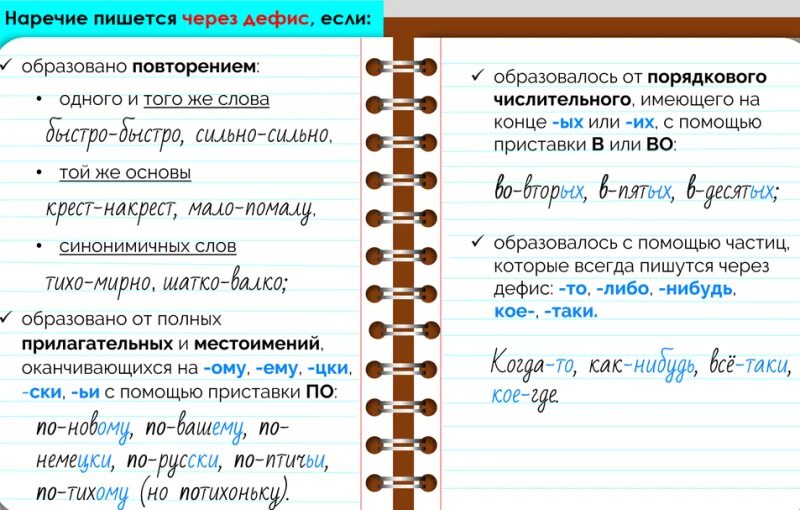 Наречие пишется через дефис, если:
✓ образовано повторением:
• одного и того же слова
быстро-быстро, сильно-сильно,
• той же основы
крест-накрест, мало-помалу,
• синонимичных слов
тихо-мирно, шатко-валко;
✓ образовано от полных
прилагательных и местоимений,
оканчивающихся на -ому, -ему, -цки,
-ски, -ьи с помощью приставки ПО:
по-новому, по-вашему, по-
немецки, по-русски, по-птичьи,
по-тихому (но потихоньку).
✓ образовалось от порядкового
числительного, имеющего на
конце -ых или -их, с помощью
приставки В или ВО:
во-вторых, в-пятых, в-десятых;
✓ образовалось с помощью частиц,
которые всегда пишутся через
дефис: -то, -либо, -нибудь,
кое-, -таки.
Когда-то, как-нибудь, всё-таки,
кое-где.